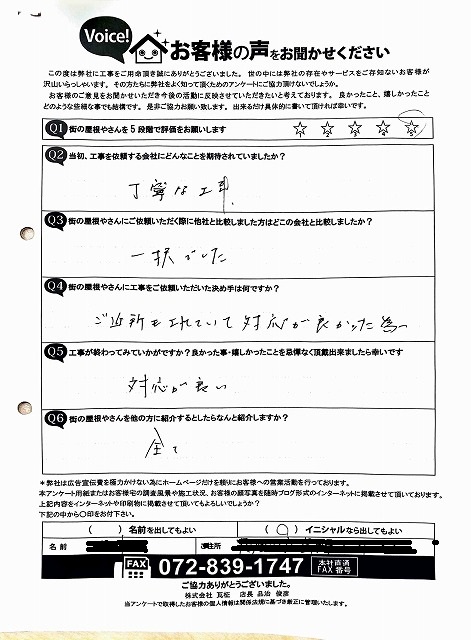 Voice!
お客様の声をお聞かせください
この度は弊社に工事をご用命頂き誠にありがとうございました。世の中には弊社の存在やサービスをご存知ないお客様が
沢山いらっしゃいます。その方たちに弊社をよく知って頂くためのアンケートにご協力頂けないでしょうか。
お客様のご意見をお聞かせいただき今後の活動に反映させていただきたいと考えております。良かったこと、嬉しかったこと
どのような些細な事でも結構です。是非ご協力お願い致します。出来るだけ具体的に書いて頂ければ幸いです。
Q1 街の屋根やさんを5段階で評価をお願いします ☆1 ☆2 ☆3 ☆4 ☆5
Q2 当初、工事を依頼する会社にどんなことを期待されていましたか?
丁寧な工事
Q3 街の屋根やさんにご依頼いただく際に他社と比較しました方はどこの会社と比較しましたか?
一択でした
Q4 街の屋根やさんに工事をご依頼いただいた決め手は何ですか?
ご近所もされていて対応が良かった為
Q5 工事が終わってみていかがですか?良かった事・嬉しかったことを忌憚なく頂戴出来ましたら幸いです
対応が良い
Q6 街の屋根やさんを他の方に紹介するとしたらなんと紹介しますか?
全て
*弊社は広告宣伝費を極力かけない為にホームページだけを頼りにお客様への営業活動を行っております。
本アンケート用紙またはお客様宅の調査風景や施工状況、お客様の顔写真を随時ブログ形式のインターネットに掲載させて頂いております。
上記内容をインターネットや印刷物に掲載させて頂いてもよろしいでしょうか?
下記の中から〇印をお付下さい。
( ) 名前を出してもよい ( 〇 ) イニシャルなら出してもよい
名前 ご住所
FAX 072-839-1747 本社直通 FAX番号
ご協力ありがとうございました。
株式会社 瓦柾 店長 品治 俊彦
当アンケートで取得したお客様の個人情報は関係法規に基づき厳正に管理いたします。